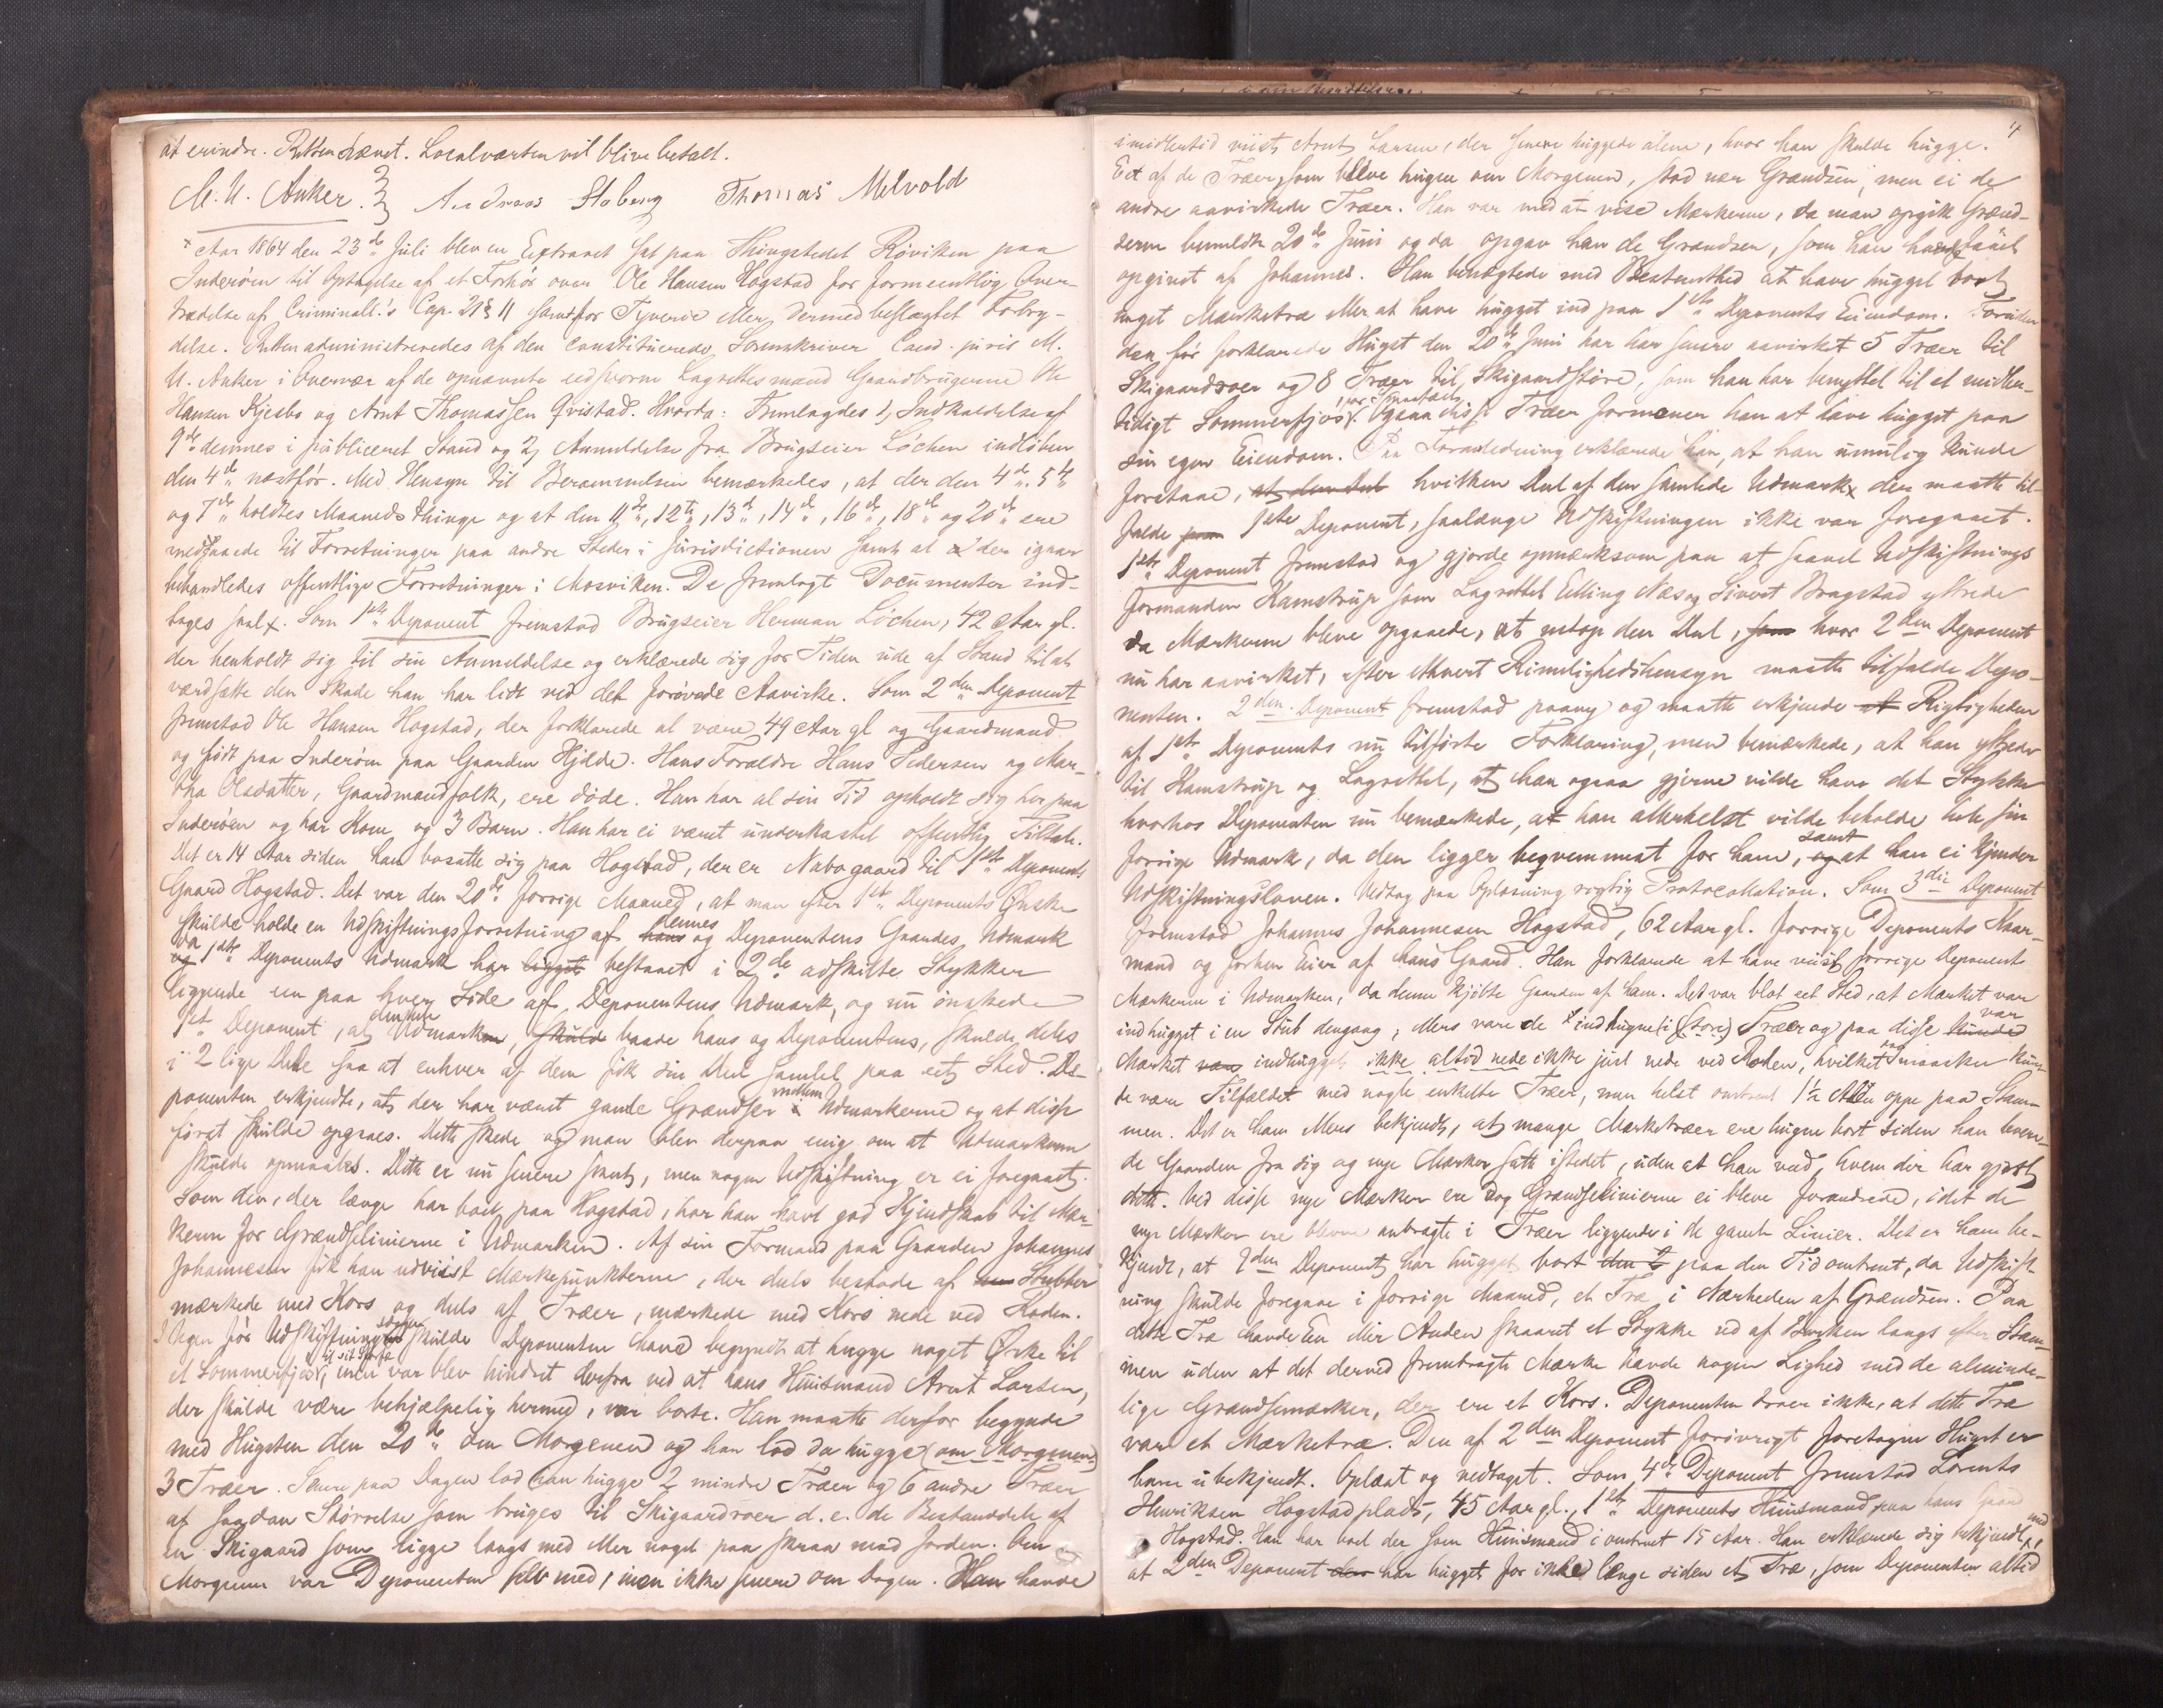 at erindre. Retten hævet. Localvarten vil blive betalt.
M. U. Anker. Andreas Staberg Thomas Melvold
Aar 1864 den 23de Juli blev en Extraret sat paa Thingstedet Röviken paa
Inderöen til Optagelse af et Forhör over Ole Hansen Hogstad for formeentlig Over-
trædelse af Criminall.'s Cap. 21 § 11 samt for Tyverie eller dermed beslægtet Forbry-
delse. Retten administreredes af den constituerede Sorenskriver Cand. juris M.
U. Anker i Overvær af de opnævnte eedsvorne Lagrettesmænd Gaardbrugerne Ole
Hansen Kjesbo og Arnt Thomassen Qvistad. Hvorda: Fremlagdes 1, Indkaldelse af
9de dennes i publiceret Stand og 2, Anmeldelse fra Brugseier Löchen indlöben
den 4de næstfor. Med Hensyn til Berammelsen bemærkedes, at der den 4de, 5te
og 7de holdtes Maanedsthinge og at den 11te, 12te, 13de, 14de, 16de, 18de og 20de ere
medgaaede til Forretninger paa andre Steder i Jurisdictionen samt at der igaar
behandledes offentlige Forretninger i Mosviken. De fremlagte Documenter ind-
tages saal. Som 1ste Deponent fremstod Brugseier Herman Löchen, 42 Aar gl.
der henholdt sig til sin Anmeldelse og erklærede sig for Tiden ude af Stand til at
værdsætte den Skade han har lidt ved det forövede Aavirke. Som 2den Deponent
fremstod Ole Hansen Hogstad, der forklarede at være 49 Aar gl og Gaardmand
og födt paa Inderöen paa Gaarden Hjelde. Hans Forældre Hans Pedersen og Mar-
tha Olsdatter, Gaardmandsfolk, ere döde. Han har al sin Tid opholdt sig her paa
Inderöen og har Kone og 3 Barn. Han har ei været underkastet offentlig Tiltale.
Det er 14 Aar siden han bosatte sig paa Hogstad, der er Nabogaard til 1ste Deponents
Gaard Hogstad. Det var den 20de forrige Maaned, at man efter 1ste Deponents Ønske
skulde holde en Udskiftningsforretning af hans dennes og Deponentens Gaardes Udmark
og da 1ste Deponents Udmark har ligget bestaaet i 2de adskilte Stykker
liggende een paa hver Side af Deponentens Udmark, og nu önskede
1ste Deponent, at Udmarken, skulde baade hans og Deponentens, skulde deles
i 2 lige Dele saa at enhver af dem fik sin Deel samlet paa eet Sted. De-
ponenten erkjendte, at der har været gamle Grændser mellem Udmarkerne og at disse
först skulde opgaaes. Dette skede og man blev derpaa enig om at Udmarkerne
skulde opmaales. Dette er nu senere skeet, men nogen Udskiftning er ei foregaaet.
Som den, der længe har boet paa Hogstad, har han havt god Kjendskab til Mær-
kerne for Grændselinierne i Udmarken. Af sin Formand paa Gaarden Johannes
Johannesen fik han udviist Mærkepunkterne, der deels bestode af Stubber
mærkede med Kors og deels af Træer, mærkede med Kors nede ved Roden.
I Ugen för Udskiftningen skulde Deponenten have begyndt at hugge noget Ørke til
et Sommerfjös, til sit Sæter men var blev hindret derfra ved at hans Huusmand Arnt Larsen,
der skulde være behjælpelig hermed, var borte. Han maatte derfor begynde
med Hugsten den 20de om Morgenen og han lod da hugge (om Morgenen)
3 Træer. Senere paa Dagen lod han hugge 2 mindre Træer og 6 andre Træer
af saadan Störrelse som bruges til Skigaardroer d. e. de Bestanddele af
en Skigaard som ligge langs med eller noget paa skraa mod Jorden. Om
Morgenen var Deponenten selv med, men ikke senere om Dagen. Han havde
4
imidlertid viist Arnt Larsen, der senere huggede alene, hvor han skulde hugge.
Eet af de Træer, som bleve hugne om Morgenen, stod nær Grændsen, men ei de
andre aavirkede Træer. Han var med at vise Mærkerne, da man opgik Grænd-
serne bemeldte 20de Juni og da opgav han de Grændser, som han havde faaet
opgivet af Johannes. Han benægtede med Bestemthed at have hugget bort
noget Mærketræ eller at have hugget ind paa 1ste Deponents Eiendom. Foruden
den för forklarede Hugst den 20de Juni har han senere aavirket 5 Træer til
Skigaardroer og 8 Træer til Skigaardstöre, som han har benyttet til et midler-
tidigt Sommerfjös. Ogsaa disse Træer formener han at have hugget paa
sin egen Eiendom. Paa Foranledning erklærede han, at han umulig kunde
forstaae, at den Del hvilken Deel af den samlede Udmark der maatte til-
falde som 1ste Deponent, saalænge Udskiftningen ikke var foregaaet.
1ste Deponent fremstod og gjorde opmærksom paa at saavel Udskiftnings
formanden Kamstrup som Lagrettet Elling Næs og Sivert Bragstad yttrede
da Mærkerne bleve opgaaede, at netop den Deel, som hvor 2den Deponent
nu har aavirket, efter ethvert Rimelighedshensyn maatte tilfalde Depo-
nenten. 2den Deponent fremstod paany og maatte erkjende at Rigtigheden
af 1ste Deponents nu tilförte Forklaring, men bemærkede, at han yttrede
til Kamstrup og Lagrettet, at han ogsaa gjerne vilde have det Stykke
hvorhos Deponenten nu bemærkede, at han allerhelst vilde beholde hele sin
forrige Udmark, da den ligger beqvemmest for ham, og samt at han ei kjender
Udskiftningsloven. Vedtog paa Oplæsning rigtig Protocollation. Som 3die Deponent
fremstod Johannes Johannesen Hogstad, 62 Aar gl. forrige Deponents Kaar-
mand og forhen Eier af hans Gaard. Han forklarede at have viist forrige Deponent
Mærkerne i Udmarken, da denne kjöbte Gaarden af ham. Det var blot eet Sted, at Mærket var
indhugget i en Stub dengang; ellers vare de indhugne (i store) Træer og paa disse kunde var
Mærket indhugget ikke altid nede ikke just nede ved Roden, hvilket maaskee kun-
de være Tilfældet med nogle enkelte Træer, men helst omtrent 1½ Alen oppe paa Stam-
men. Det er ham ellers bekjendt, at mange Mærketræer ere hugne bort siden han lever-
de Gaarden fra sig og nye Mærker satte istedet, uden at han veed, hvem der har gjort
dette. Ved disse nye Mærker ere dog Grændselinierne ei bleve forandrede, idet de
nye Mærker ere blevne anbragte i Træer liggende i de gamle Linier. Det er ham be-
kjendt, at 2den Deponent har hugget bort paa den Tid omtrent, da Udskift-
ning skulde foregaae i forrige Maaned, et Træ i Nærheden af Grændsen. Paa
dette Træ havde En eller Anden skaaret et Stykke ud af Barken langs efter Stam-
men uden at det derved frembragte Mærke havde nogen Lighed med de alminde-
lige Grændsemærker, der ere et Kors. Deponenten troer ikke, at dette Træ
var et Mærketræ. Den af 2den Deponent forövrigt foretagne Hugst er
ham ubekjendt. Oplæst og vedtaget. Som 4de Deponent fremstod Lorents
Henriksen Hogstadplads, 45 Aar gl., 1ste Deponents Huusmand paa hans Gaard
Hogstad. Han har boet der som Huusmand i omtrent 15 Aar. Han erklærede sig bekjendt med,
at 2den Deponent har hugget for ikke længe siden et Træ, som Deponenten altid